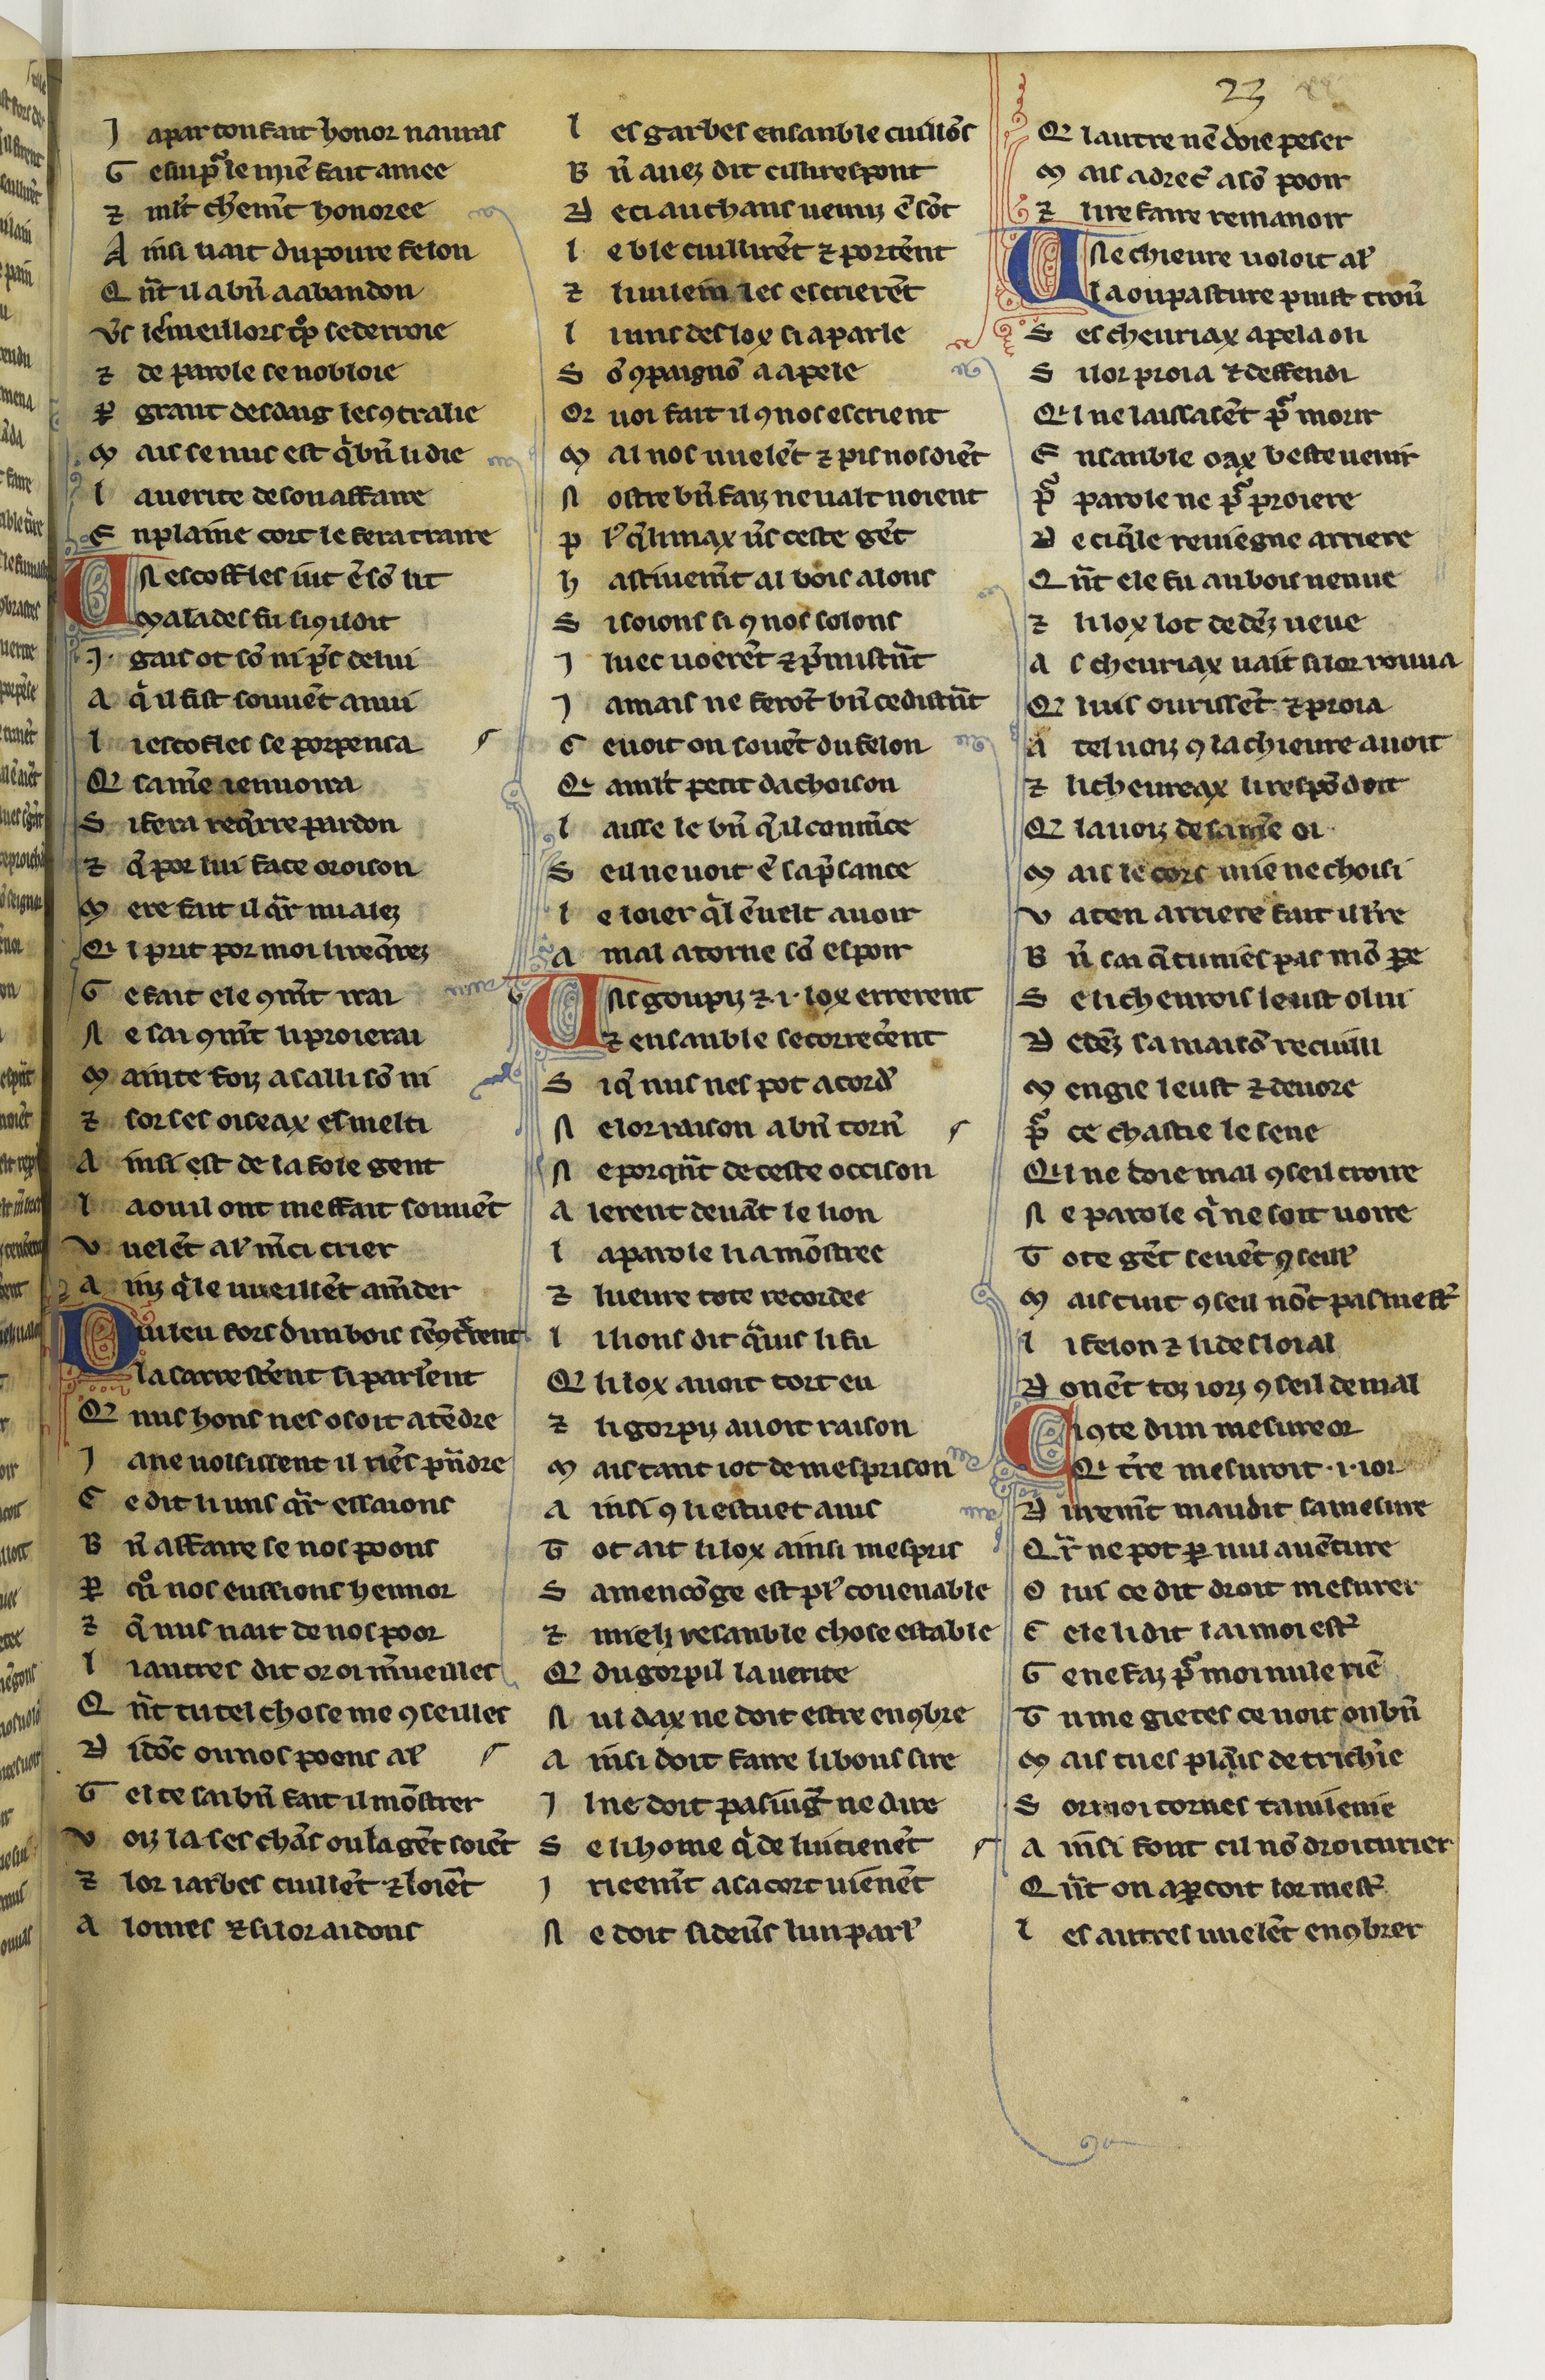 23
J apar ton fait honor nauras
G esui pͬ le miē fait amee
⁊ ml̕t chͥemͭt honoree
A insi uait du poure felon
Q n̄t il a bn̄ a abandon
Vs̄ les meillors qͦp se derroie
⁊ de parole se nobloie
ꝑ grant desdaig les ꝯtralie
M ais se nus est qͥ bn̄ li die
L a uerite de son affaire
E n plaine cort le fera traire
Uns escoffles iut ē sō lit
Malades fu si ꝯ il dit
.J. gais ot sō ni p̄s de lui
A qͥ il fist souuēt anui
L i escofles se porpensa
Q sa mē ienuoira
S i fera reqͥrre pardon
⁊ q̄ por lui face oroison
M ere fait il qͣr mi alez
Q i prit por moi li reqͥrez
G e fait ele ꝯmt̄ irai
N e sai ꝯmt̄ li proierai
M ainte foiz asalli sō ni
⁊ sor ses oiseax esmelti
A insi est de la fole gent
L a ou il ont meffait souuēt
V uelēt al̕ mͬci crier
A inz qͥ le uueillēt am̄der
Dui leu fors dun bois sēꝯtͣrent
La sarresterent si parlerent
Q nus hons nes osoit atēdre
J a ne uoisissent il riēs pn̄dre
C e dit li uns qͣr essaions
B n̄ affaire se nos poons
ꝑ qͦ nos eussions hennor
⁊ q̄ nus nait de nos poor
L i autres dit or oi mͬueilles
Q n̄t tu tel chose me ꝯseilles
D i dōc ou nos poons al̕
G el te sai bn̄ fait il mōstrer
V oiz la ses chās ou la gēt soiēt
⁊ lor iarbes cuillēt ⁊ loiēt
A lomes ⁊ si lor aidons
L es garbes ensanble cuillōs
B n̄ auez dit cil li respont
D eci au chans uenuz ē sōt
L e ble cuillirēt ⁊ portēnt
⁊ li uilein les escrierēt
L i uns des lox si a parle
S ō ꝯpaignō a apele
Q uoi fait il ꝯ nos escrient
M al nos uuelēt ⁊ pis nos diēt
N ostre bn̄ faiz ne ualt noient
P l̕ qͣ li max uͬs ceste gēt
H astiuemt̄ al bois alons
S i soions si ꝯ nos solons
J luec uoerēt ⁊ pͬmistrēt
J amais ne ferōt bn̄ ce distrēt
C e uoit on souēt du felon
Q a mlt̕ petit dachoison
L aisse le bn̄ q̄ il commēce
S eil ne uoit ē sa pͬsance
L e loier qͥl ē uelt auoir
A mal atorne sō espoir
Uns goupiz ⁊ .i. lox errerent
⁊ ensanble se correcēnt
S i q̄ nus nes pot acord̕
N e lor raison a bn̄ torn̄
N e porqn̄t de ceste occison
A lerent deuāt le lion
L a parole li a mōstree
⁊ lueure tote recordee
L i lions dit qͣuis li fu
Q li lox auoit tort eu
⁊ li gorpiz auoit raison
M ais tant iot de mesprison
A insi ꝯ li estuet auis
T ot ait li lox ainsi mespris
S a mencōge est pl̕ couenable
⁊ mielz resanble chose estable
Q du gorpil la uerite
N ul dax ne doit estre enꝯbre
A insi doit faire li bons sire
J l ne doit pas iuigͬ ne dire
S e li home qͥ de lui tienēt
J rieemt̄ a sa cort uiēnēt
N e doit si deūs lun parl̕
Q lautre nē doie peser
M ais adrecͬ a sō pooir
⁊ lire faire remanoir
Une chieure uoloit al̕
La ou pasture puist trou̕
S es cheuriax apela on
S i lor proia ⁊ deffendi
Q i ne laissasēt pͬ morir
E nsanble oax beste uenir
Pͬ parole ne pͬ proiere
D eci qͣle reuiegne arriere
Q n̄t ele fu au bois uenue
⁊ li lox lot dedēz ueue
A s cheuriax uait si lor rouua
Q luis ourissēt ⁊ proia
A tel uoiz ꝯ la chieure auoit
⁊ li cheureax li respōdoit
Q la uoiz de sa mē oi
M ais le cors mie ne choisi
V aten arriere fait il lr̄e
B n̄ sai q̄ tu niēs pas mō pe
S e li cheurois leust olui
D edēz sa maisō recuilli
M engie leust ⁊ deuore
Pͬ ce chastie le sene
Q il ne doie mal ꝯseil croire
N e parole qͥ ne soit uoire
T ote gēt seuēt ꝯseill̕
M ais tuit ꝯseil nōt pas mestͬ
L i felon ⁊ li desloial
D onēt toz iorz ꝯseil de mal
Ci ꝯte dun mesureor
Q i tr̄e mesuroit .i. ior
D uremt̄ maudit sa mesure
Q ͬ ne pot ꝑ nul auēture
O lui ce dit droit mesurer
C ele li dit lai moi estͬ
G e ne faz pͬ moi nule riē
T u me gietes ce uoit on bn̄
M ais tu es plains de trichͥie
S or moi tornes ta uilenie
A insi font cil nō droiturier
Q n̄t on aꝑcoit lor meffͬ
L es autres uuelēt enꝯbrer